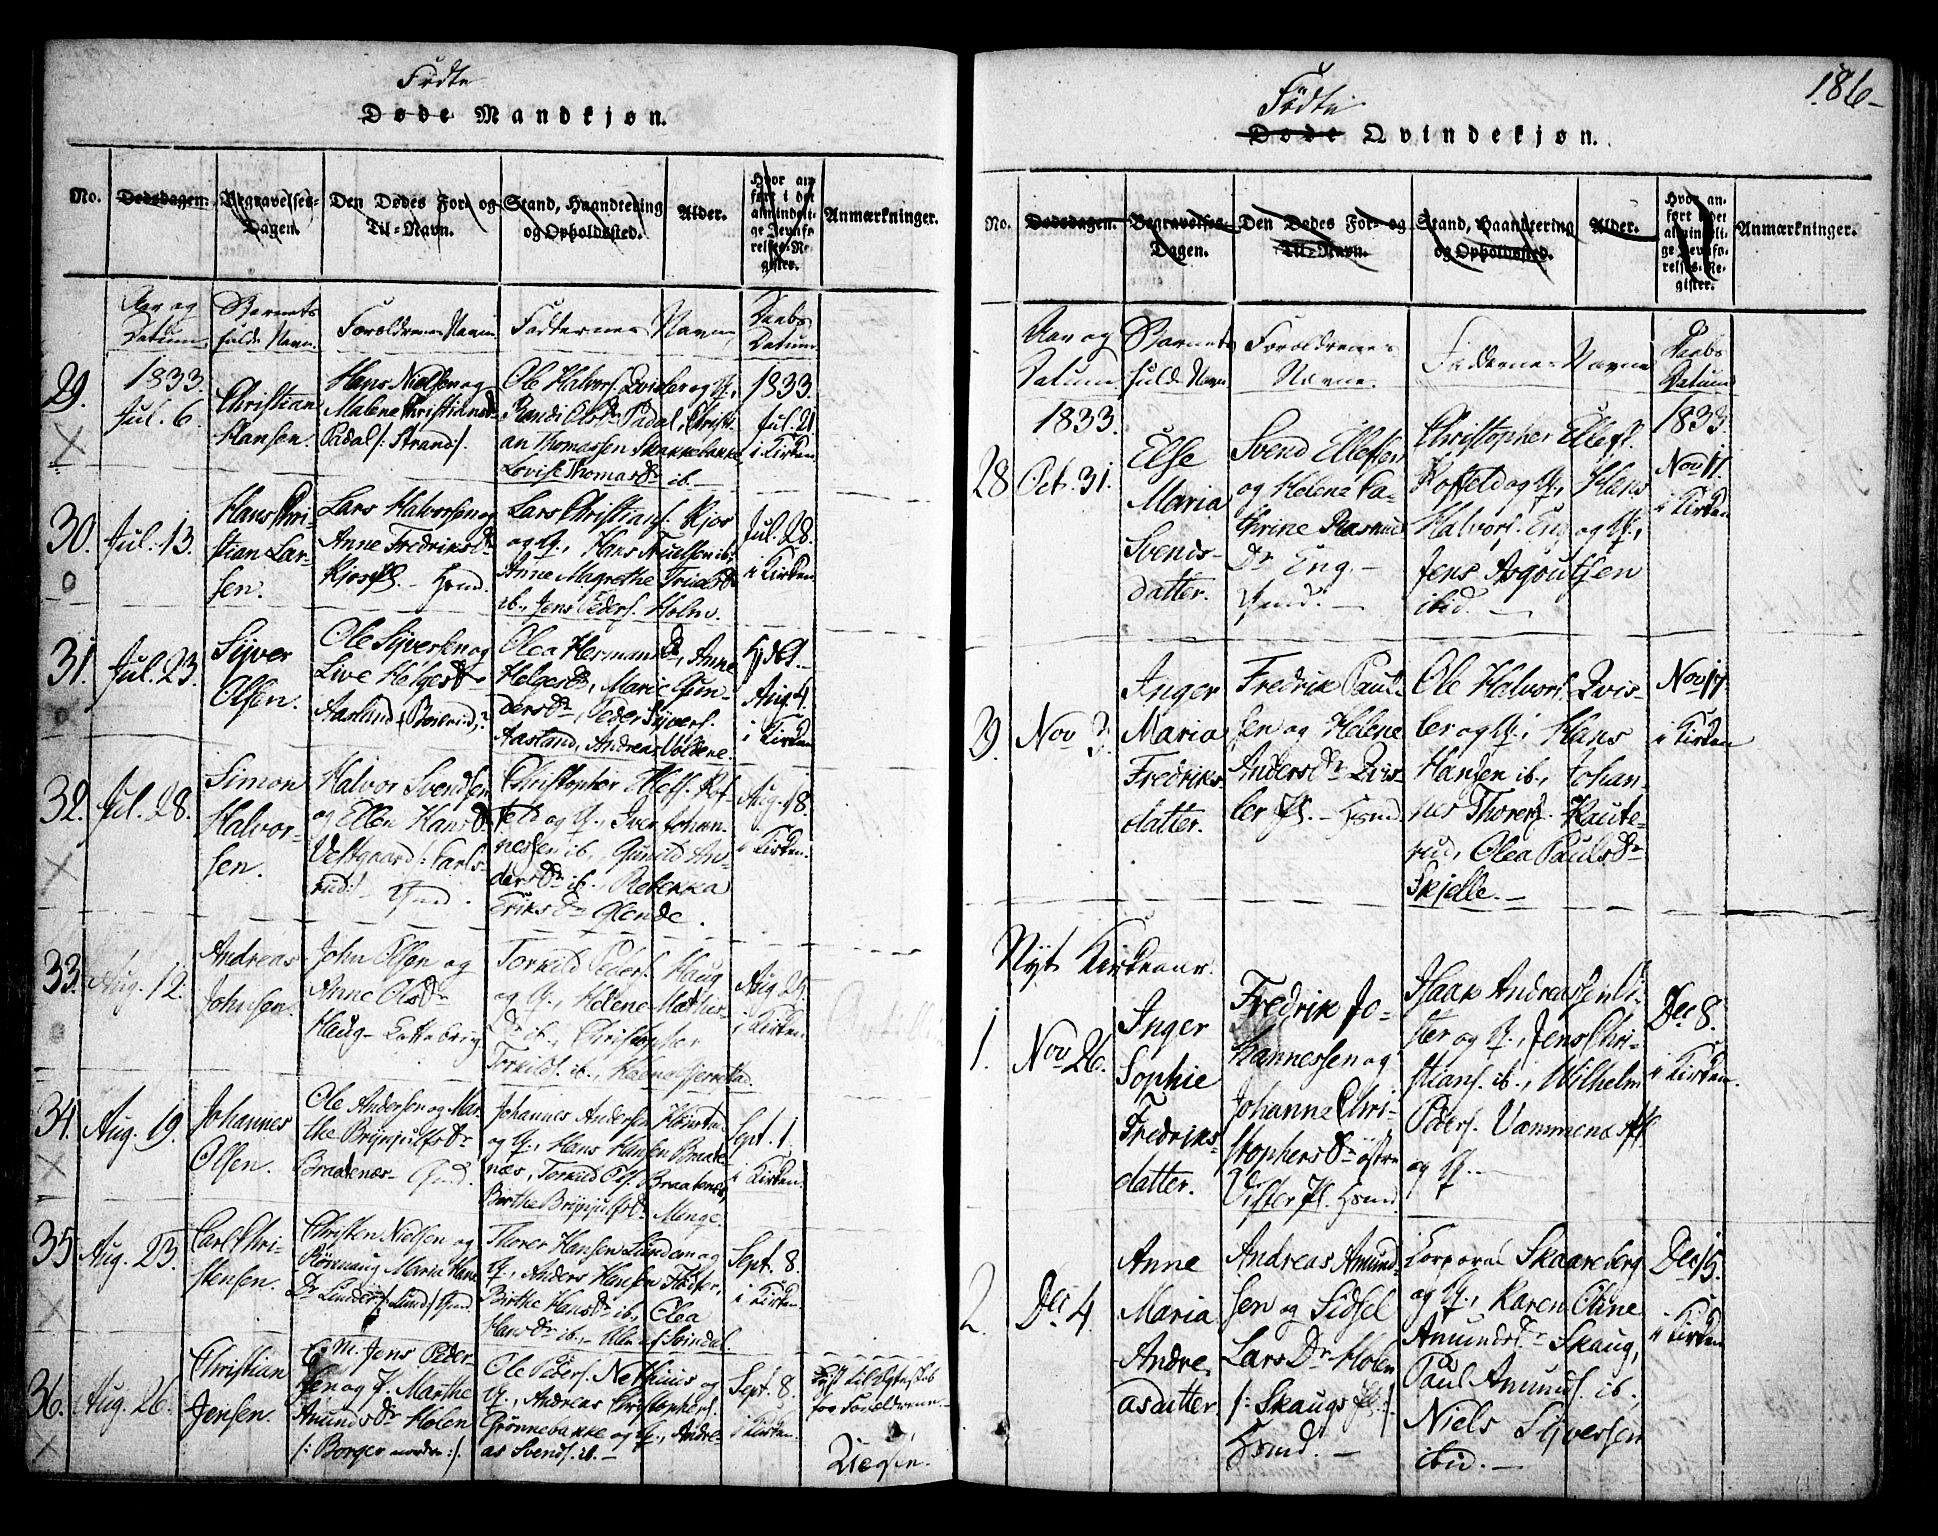 Fødte
Døde Mandkjøn.
No.
Dødsdagen.
Begravelses-
Dagen.
Den Dødes For- og
Til-Navn.
Stand, Haandtering
og Opholdssted.
Alder.
Hvor an-
ført i det
almindeli-
ge Jevnfø-
relses-Re-
gister.
Anmærkninger.
Aar og
Datum
Barnets
fulde Navn.
Forældrenes Navne
Faddernes Navne
Daabs
Datum
29.
1833.
Jul. 6.
Christian
Hansen.
Hans Nielsen og
Malene Christiansd
Padal /: Strand :/.
Ole Halvors. Qvisler og Q.,
Randi Olsdr Padal, Christi-
an Thomassen Skakkebakke,
Lovise Thomasdr ib.
1833
Jul. 21
i Kirken
30.
Jul. 13.
Hans Chri-
stian Lar-
sen.
Lars Halvorsen og
Anne Fredriksdr
Kjos Pl. Hsmd.
Lars Christians. Kjos
og Q., Hans Truelsen ib.
Anne Magrethe Truelsdr
ib., Jens Peders. Holm.
Jul. 28.
i Kirken
31.
Jul. 23.
Sijver
Olsen.
Ole Sijversen og
Live Helgesdr
Aasland
Olea Hermansdr, Anne
Helgesdr, Marie Gun-
dersdr, Peder Sijvers.
Aasland, Andreas
Hjd
Aug. 4.
i Kirken
32.
Jul. 28.
Simon
Halvor-
sen.
Halvor Svendsen
og Ellen Hansdr
Vestgaard /: Carls-
rud :/ Gmd.
Christopher Ellefs. Rof-
feld og Q., Iver Johan-
nessen ib., Gunild An-
dersdr ib., Rebekka
Eriksdr Glende.
Aug. 18.
i Kirken.
33.
Aug. 12.
Andreas
Johnsen.
John Olsen og
Anne Olsdr
Haug
Torkild Peders. Haug
og Q., Helene Mathis-
dr ib., Christopher
Torkilds. ib.,
Aug. 25.
i Kirken
34.
Aug. 19.
Johannes
Olsen.
Ole Andersen og Mar-
the Brynjulfsdr
Braatenæs Gmd.
Johannes Andersen
og Q., Hans Hansen Braate-
næs, Torkild Ols. Braatenæs,
Birthe Brynjulfsdr Menge.
Sept. 1.
i Kirken.
35
Aug. 23.
Carl Chri-
stensen.
Christen Nielsen og
Rønnaug Maria Hans
Dr Lunder /: Lund :/ Gmd.
Thorer Hansen Lundem og
Q., Anders Hansen
Birthe Hansdr ib., Olea
Hansdr ib., Svindal.
Sept. 8.
i Kirken.
36.
Aug. 26.
Christian
Jensen.
G. M. Jens Peder-
sen og P. Marthe
Amundsdr Holen
/: Borger :/.
Ole Peders. og
Q., Andreas Christophers.
Grønnebakke og Q., Andre-
as Svends. ib.
Sept. 8.
i Kirken.
186
Fødte
Døde Qvindekjøn.
No.
Dødsdagen.
Begravelses-
Dagen.
Den Dødes For- og
Til-Navn.
Stand, Haandtering
og Opholdssted.
Alder.
Hvor an-
ført i det
almindeli-
ge Jevnfø-
relses-Re-
gister.
Anmærkninger.
Aar og
Datum
Barnets
fulde Navn
Forældrenes
Navne.
Faddernes Navne
Daabs
Datum
28
1833.
Oct. 31.
Else
Maria
Svends-
datter.
Svend Ellefsen
og Helena Ca-
thrine Rasmus
Dr Eng.
Hsmd.
Christopher Ellefs.
Roffeld og Q., Hans
Halvors. Eng og Q.,
Jens Asgoutsen
ibid.
1833.
Nov 17.
i Kirken
29.
Nov 3.
Inger
Maria
Fredriks-
datter.
Fredrik Paul-
sen og Helene
Andersdr Qvis-
ler Pl. Hsmd.
Ole Halvors. Qvis-
ler og Q., Hans
Hansen ib., Johan-
nes Thorers. Kaute-
rud, Olea Paulsdr
Skjelle.
Nov 17.
i Kirken
Nyt Kirkeaar.
1.
Nov 26.
Inger
Sophie
Fredriks-
datter.
Fredrik Jo-
hannessen og
Johanne Chri-
stophersdr østre
Vister Pl. Hsmd.
Isaak Andreassen Vi-
ster og Q., Jens Chri-
stians. ib., Wilhelm
Peders. Vammenæs
og Q.
Dec 8.
i Kirken.
2.
Dec 4.
Anne
Maria
Andre-
asdatter.
Andreas Amund-
sen og Sidsel
Larsdr Holen
/: Skaugs Pl. :/
Hsmd.
Corporal Skaareberg
og Q., Karen Oline
Amundsdr Skaug,
Paul Amunds. ib.,
Niels Syversen
ibid.
Dec 15.
i Kirken